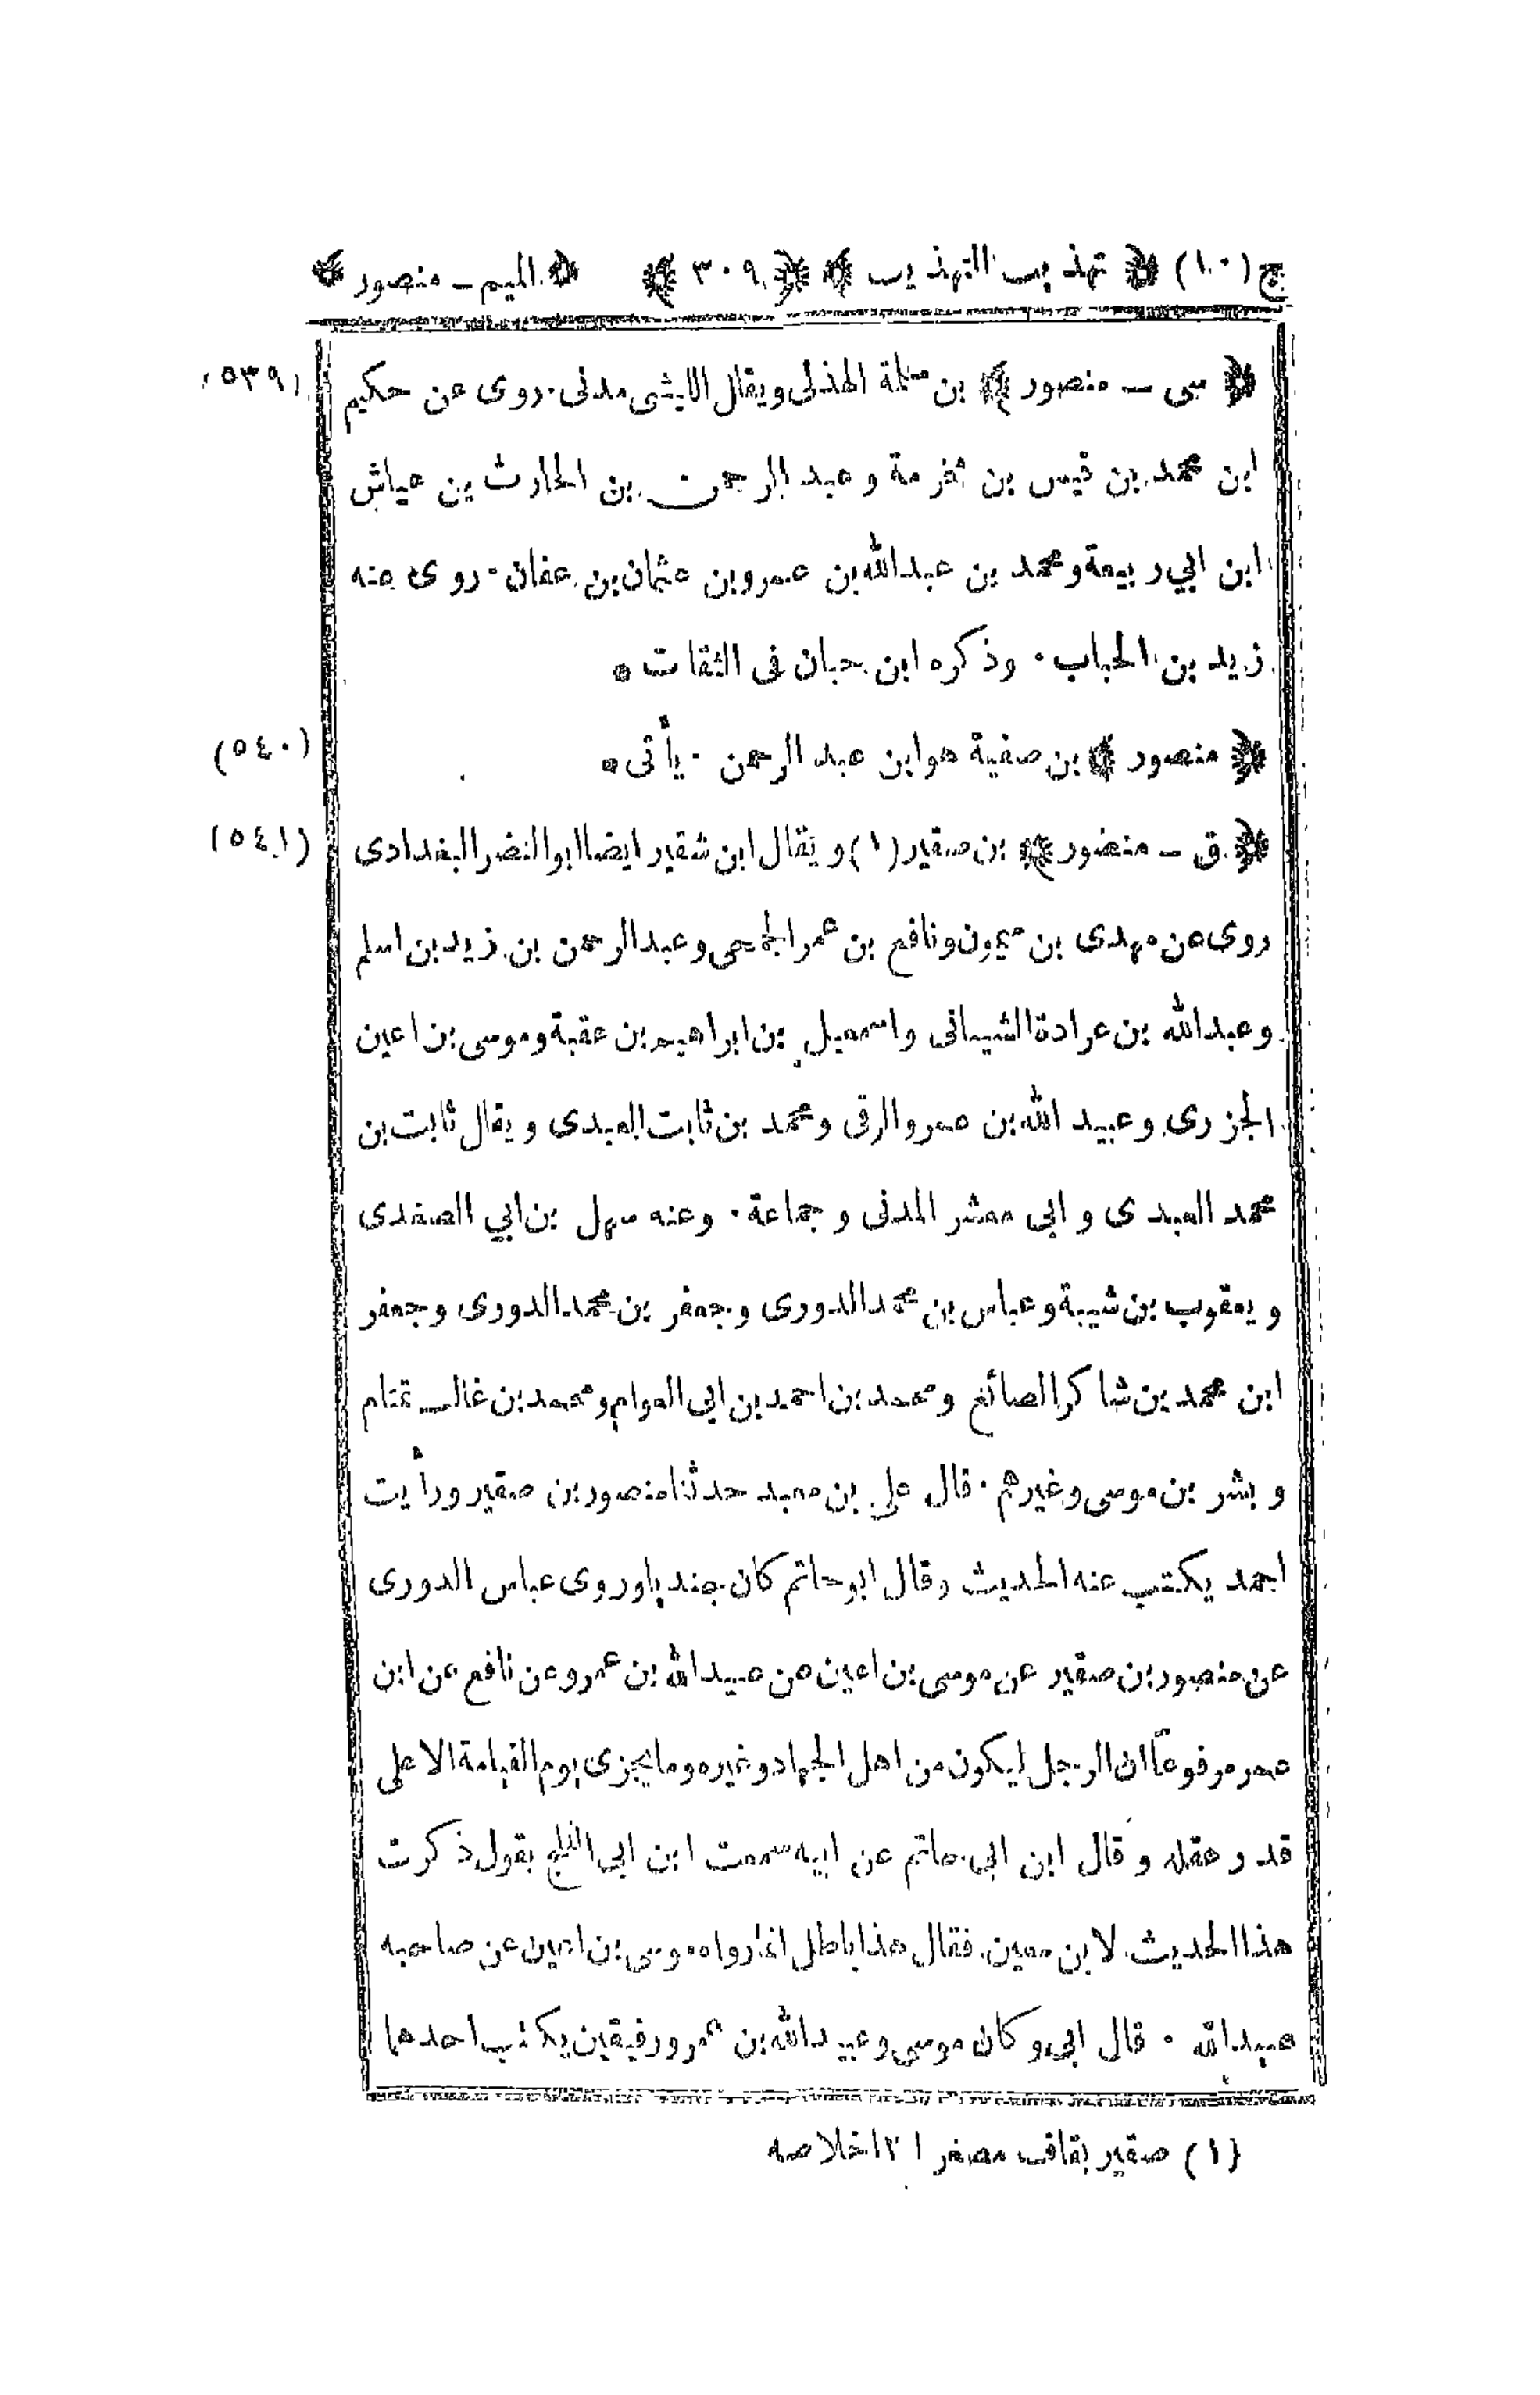 ج (١٠) ﴿ تهذيب التهذيب ﴾ ﴿ ٣٠٩ ﴾ ﴿ الميم ـ منصور ﴾
﴿ سى ـ منصور ﴾ بن سلمة الهذلى ويقال الليثى مدنى · روى عن حكيم (٥٣٩)
ابن محمد بن قيس بن مخرمة وعبد الرحمن بن الحارث بن عياش
ابن ابي ربيعة ومحمد بن عبدالله بن عمرو بن عثمان بن عفان · روى عنه
زيد بن الحباب · وذكره ابن حبان فى الثقات ه
﴿ منصور ﴾ بن صفية هو ابن عبد الرحمن · يأتى ه (٥٤٠)
﴿ ق ـ منصور ﴾ بن صقير (١) ويقال ابن شقير ايضا ابو النضر البغدادى (٥٤١)
روى عن مهدى بن ميمون ونافع بن عمر الجمحى وعبد الرحمن بن زيد بن اسلم
وعبدالله بن عرادة الشيبانى واسمعيل بن ابراهيم بن عقبة وموسى بن اعين
الجزرى وعبيد الله بن عمرو الرقى ومحمد بن ثابت العبدى ويقال ثابت بن
محمد العبدى و ابى معشر المدنى وجماعة · وعنه سهل بن ابي الصغدى
و يعقوب بن شيبة وعباس بن محمد الدورى وجعفر بن محمد الدورى وجعفر
ابن محمد بن شاكر الصائغ ومحمد بن احمد بن ابى العوام ومحمد بن غالب تمتام
و بشر بن موسى وغيرهم · قال على بن معبد حدثنا منصور بن صقير ورأيت
احمد يكتب عنه الحديث وقال ابو حاتم كان جنديا وروى عباس الدورى
عن منصور بن صقير عن موسى بن اعين عن عبيد الله بن عمرو عن نافع عن ابن
عمر مرفوعاً ان الرجل ليكون من اهل الجهاد وغيره وما يجزى يوم القيامة الا على
قدر عقله و قال ابن ابى حاتم عن ابيه سمعت ابن ابى الثلج يقول ذكرت
هذا الحديث لابن معين فقال هذا باطل انما رواه موسى بن اعين عن صاحبه
عبيد الله · قال ابى وكان موسى وعبيد الله بن عمرو رفيقين يكتب احدهما
(١) صقير بقاف مصغر ١٢ خلاصه